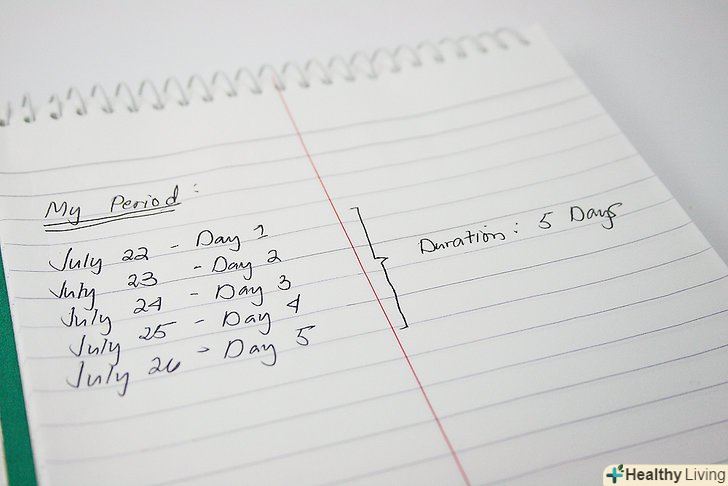 My Period:
July 22 - Day 1
July 23 - Day 2
July 24 - Day 3
July 25 - Day 4
July 26 - Day 5
Duration: 5 Days
Healthy Living